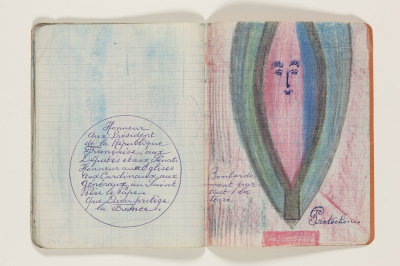 Honneur
aux Président
de la République
Française, aux
Députés et aux
Honneur aux Eglises
aux Cardinaux, aux
Généraux, au Saint
Père le
Que Dieu protège
la France.
Bombarde
ment par
tout / la
terre
Protection.